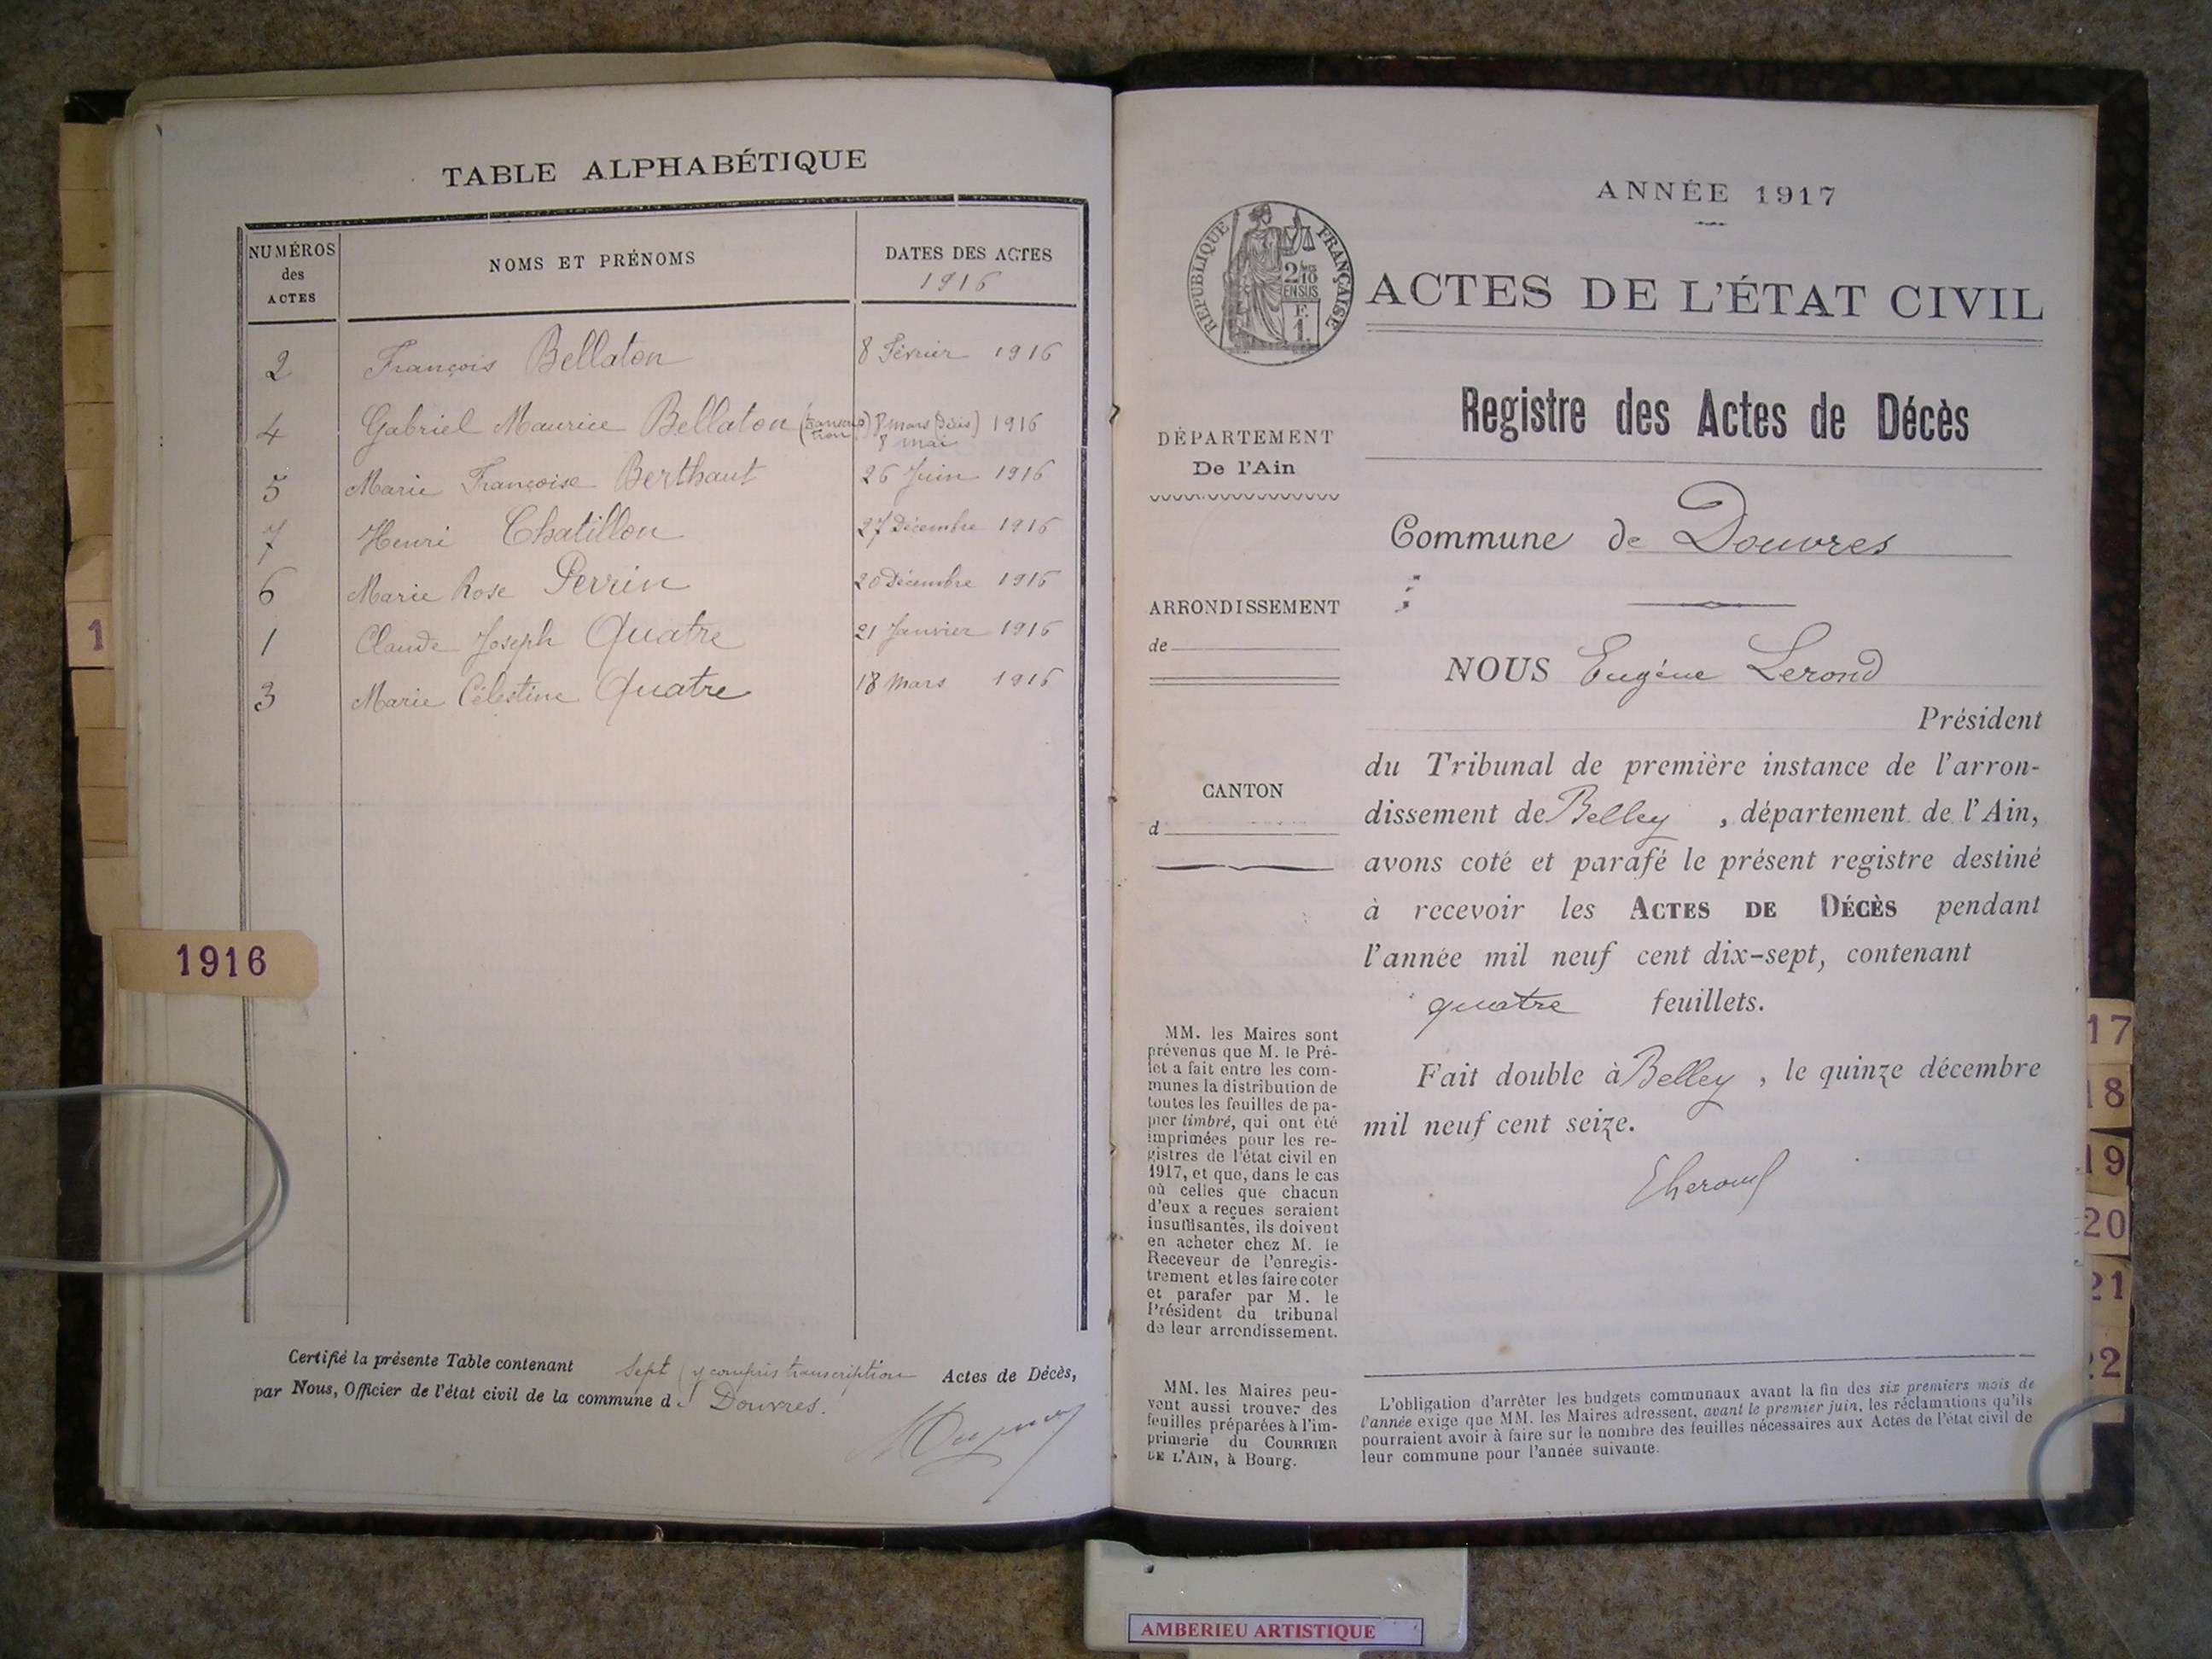 TABLE ALPHABÉTIQUE
NUMÉROS des ACTES
NOMS ET PRÉNOMS
DATES DES ACTES
1916
2 François Bellaton 8 Février 1916
4 Gabriel Maurice Bellaton (transcription) 8 mars (Décès) 1916
8 mai
5 Marie Françoise Berthaut 26 Juin 1916
7 Henri Chatillon 27 Décembre 1916
6 Marie Rose Perrin 20 Décembre 1916
1 Claude Joseph Quatre 21 Janvier 1916
3 Marie Célestine Quatre 18 Mars 1916
1
1916
Certifié la présente Table contenant Sept (y compris transcription Actes de Décès,
par Nous, Officier de l'état civil de la commune de Douvres.
ANNÉE 1917
RÉPUBLIQUE FRANÇAISE
2/10
EN SUS
F.
1.
ACTES DE L'ÉTAT CIVIL
Registre des Actes de Décès
DÉPARTEMENT
De l'Ain
Commune de Douvres
ARRONDISSEMENT
de
NOUS Eugéne Lerond
Président
du Tribunal de première instance de l'arron-
dissement de Belley , département de l'Ain,
avons coté et parafé le présent registre destiné
à recevoir les ACTES DE DÉCÈS pendant
l'année mil neuf cent dix-sept, contenant
quatre feuillets.
Fait double à Belley , le quinze décembre
mil neuf cent seize.
CANTON
d
MM. les Maires sont
prévenus que M. le Pré-
fet a fait entre les com-
munes la distribution de
toutes les feuilles de pa-
pier timbré, qui ont été
imprimées pour les re-
gistres de l'état civil en
1917, et que, dans le cas
où celles que chacun
d'eux a reçues seraient
insuffisantes, ils doivent
en acheter chez M. le
Receveur de l'enregis-
trement et les faire coter
et parafer par M. le
Président du tribunal
de leur arrondissement.
MM. les Maires peu-
vent aussi trouver des
feuilles préparées à l'im-
primerie du COURRIER
DE L'AIN, à Bourg.
L'obligation d'arrêter les budgets communaux avant la fin des six premiers mois de
l'année exige que MM. les Maires adressent, avant le premier juin, les réclamations qu'ils
pourraient avoir à faire sur le nombre des feuilles nécessaires aux Actes de l'état civil de
leur commune pour l'année suivante.
17
18
19
20
21
22
AMBERIEU ARTISTIQUE